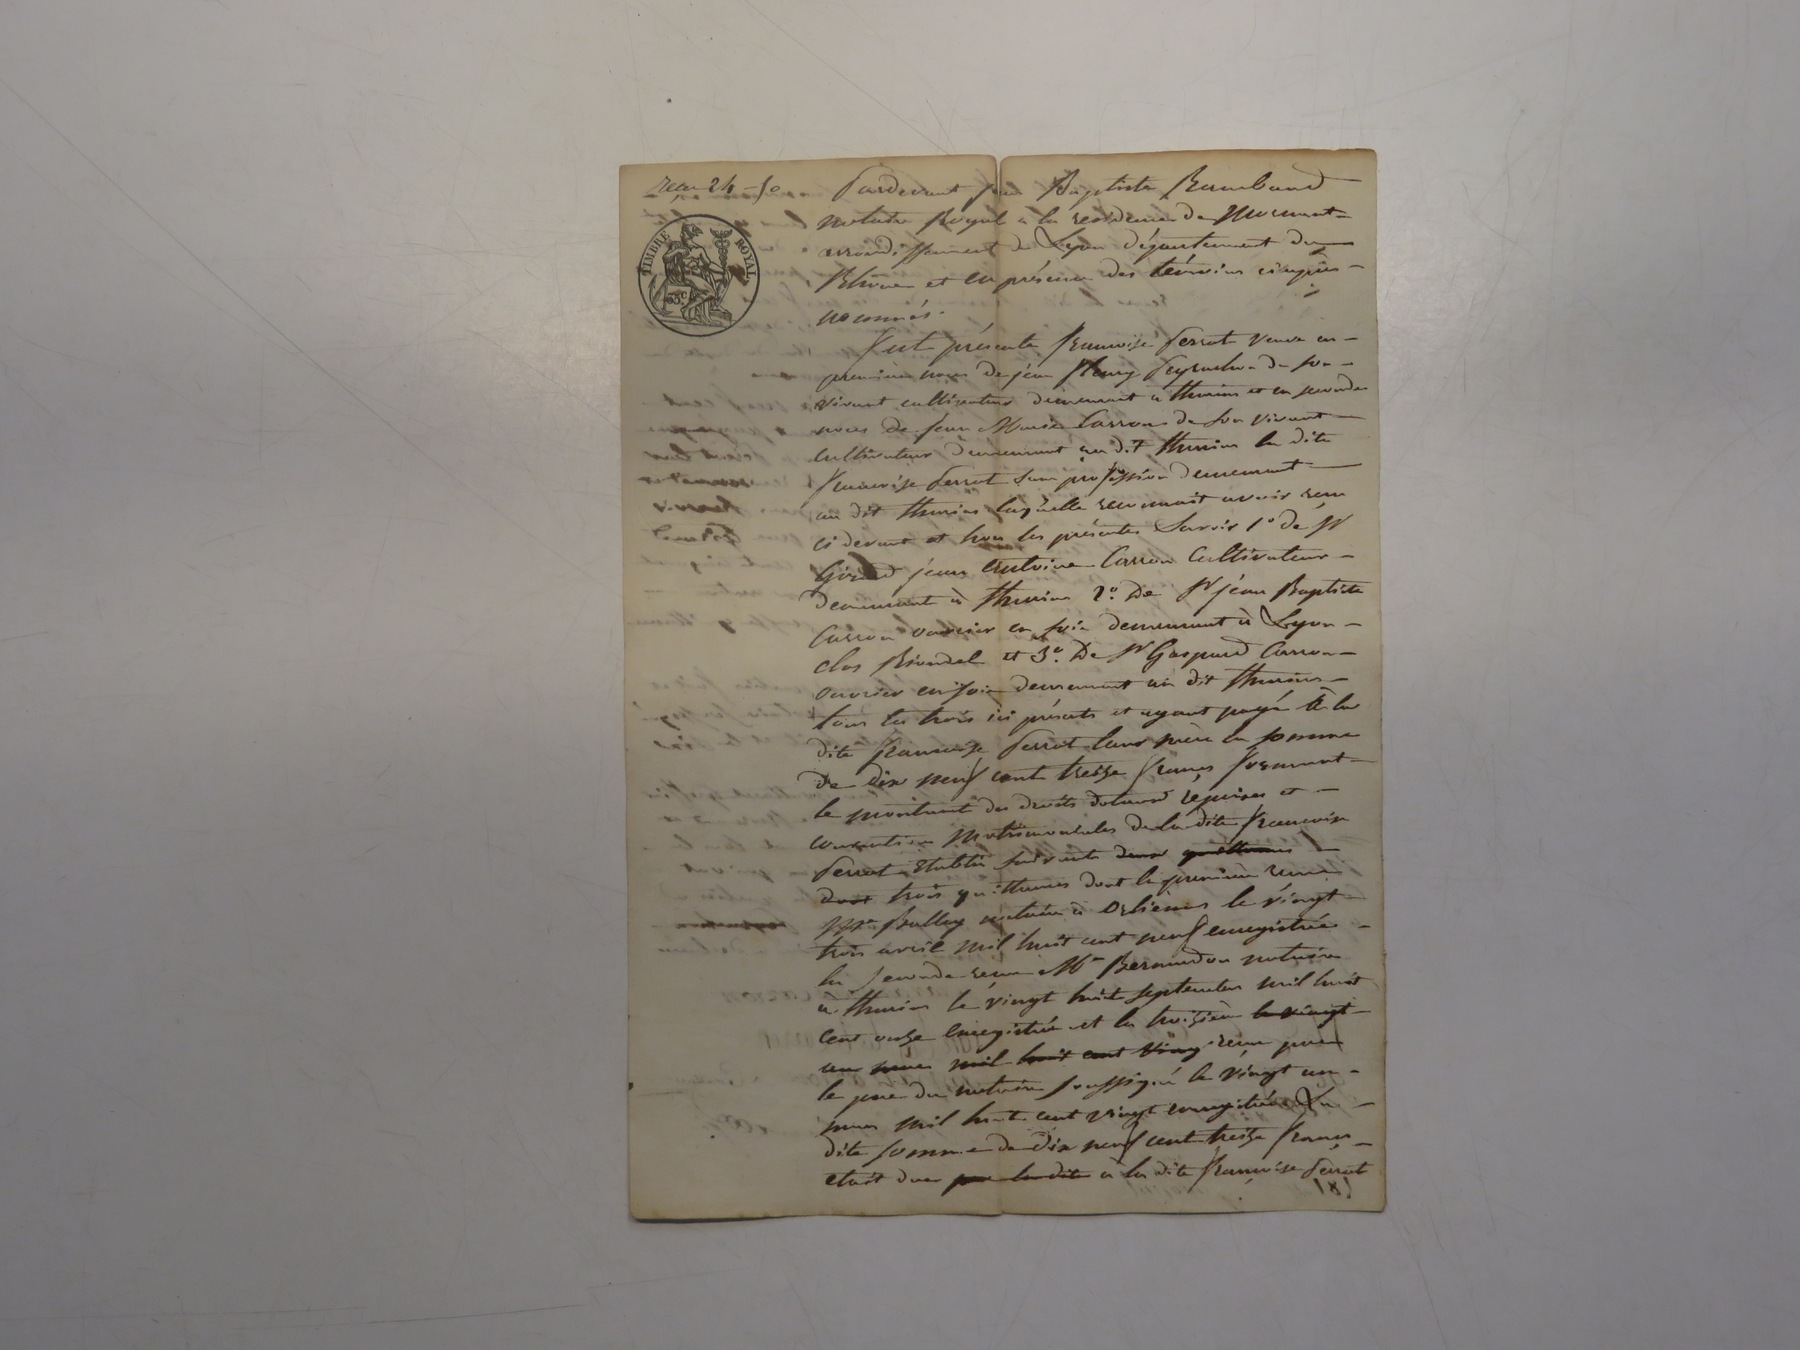 reçu 24 - 50
TIMBRE ROYAL
35 c.
Pardevant jean Baptiste Rambaud
notaire Royal à la residence de Mornant
arrondissement de Lyon département du
Rhône et en présence des témoins ci après
nommés.
fut présente francoise Perrot veuve en
premieres noces de jean fleury de son
vivant cultivateur demeurant a thurins et en secondes
noces de jean Marie Carron de son vivant
cultivateur demeurant au dit thurins la dite
francoise Perrot sans profession demeurant
au dit thurins laquelle reconnait avoir reçu
ci devant et hors les présentes Savoir 1° de Sr
jean antoine Carron Cultivateur
demeurant à thurins 2° De Sr jean Baptiste
Carron ouvrier en soie demeurant à Lyon
clos Riondel et 3° De Sr Gaspard Carron
ouvrier en soie demeurant au dit thurins
tous les trois ici présents et ayant payé à la
dite francoise Perrot leur mère la somme
De dix neuf cent treize francs formant
le montant des droits dotaux reprises et
matrimoniales de la dite francoise
Perrot établis suivants deux quittances
dont trois quittances dont la premiere reçue
Me notaire à Orlienas le vingt
trois avril mil huit cent neuf enregistrée
la seconde reçue Me notaire
a thurins le vingt huit septembre mil huit
cent onze enregistrée et la troisieme le vingt
un mars mil huit cent vingt reçue par
le pere du notaire soussigné le vingt un
mars mil huit cent vingt enregistrée La
dite somme de dix neuf cent treize francs
etait due par la dite à la dite francoise Perrot